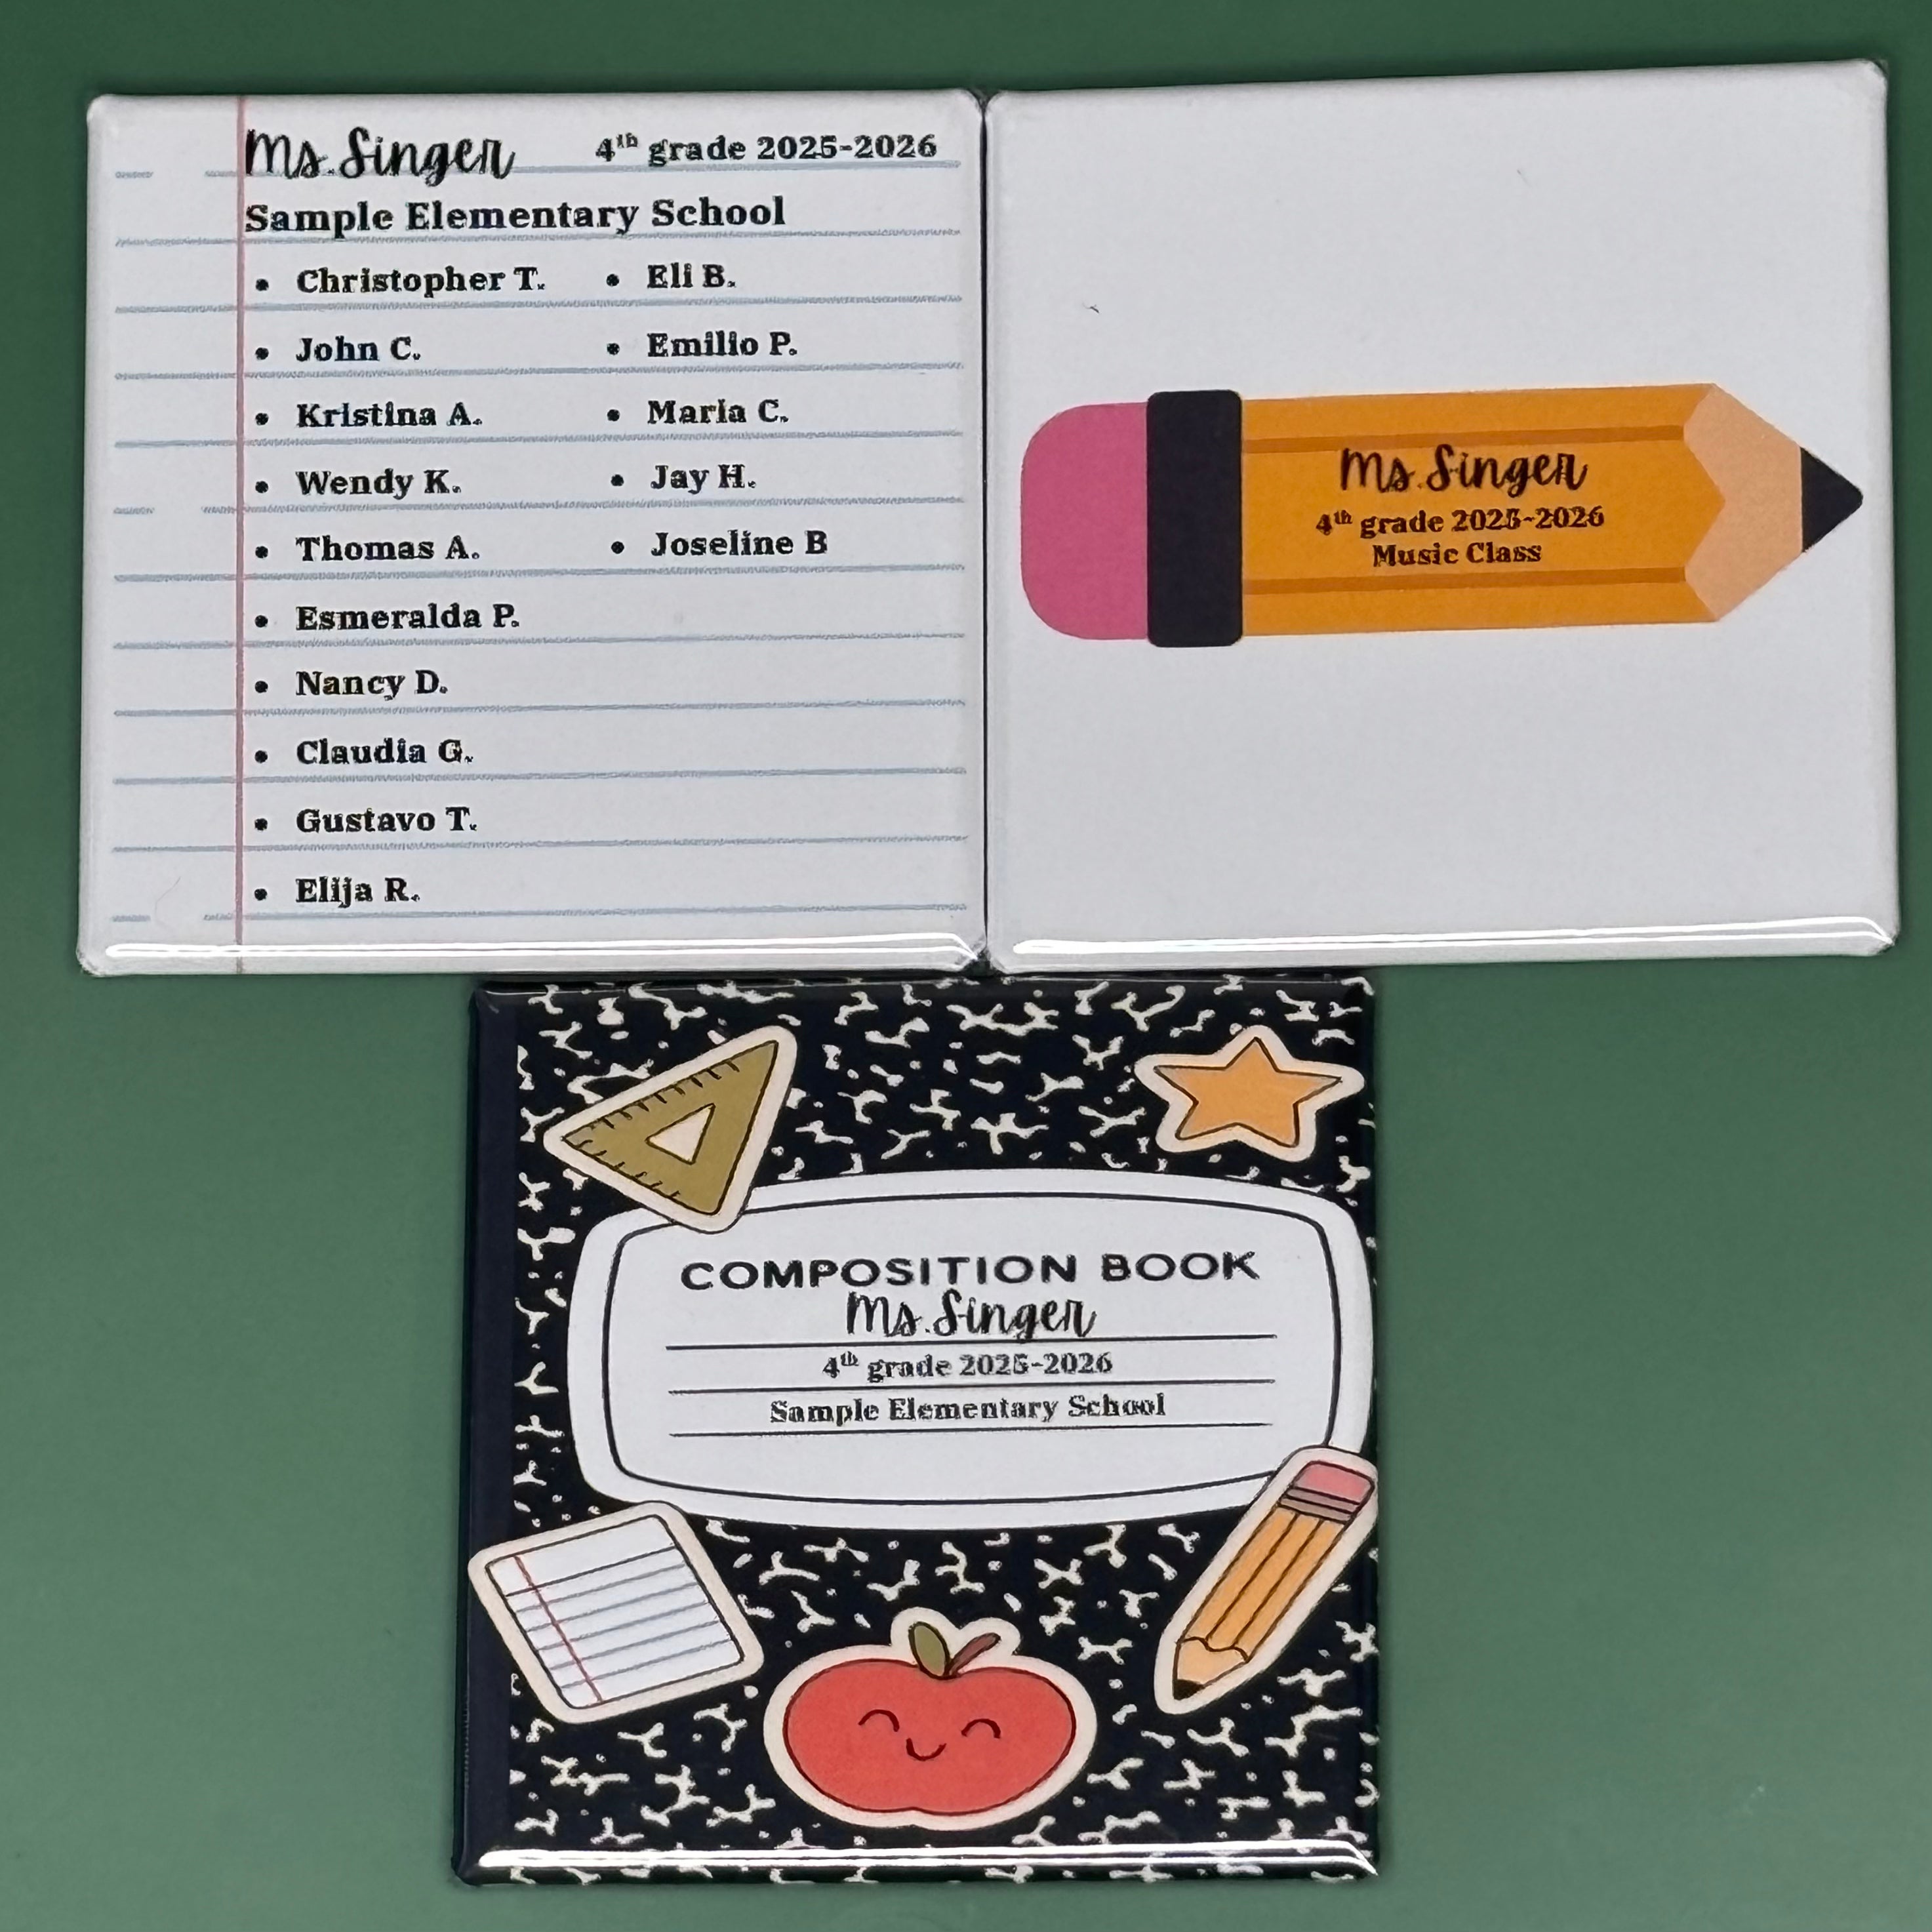 Ms. Singer 4th grade 2025-2026
Sample Elementary School
• Christopher T. • Eli B.
• John C. • Emilio P.
• Kristina A. • Maria C.
• Wendy K. • Jay H.
• Thomas A. • Joseline B
• Esmeralda P.
• Nancy D.
• Claudia G.
• Gustavo T.
• Elija R.
Ms. Singer
4th grade 2025-2026
Music Class
COMPOSITION BOOK
Ms. Singer
4th grade 2025-2026
Sample Elementary School